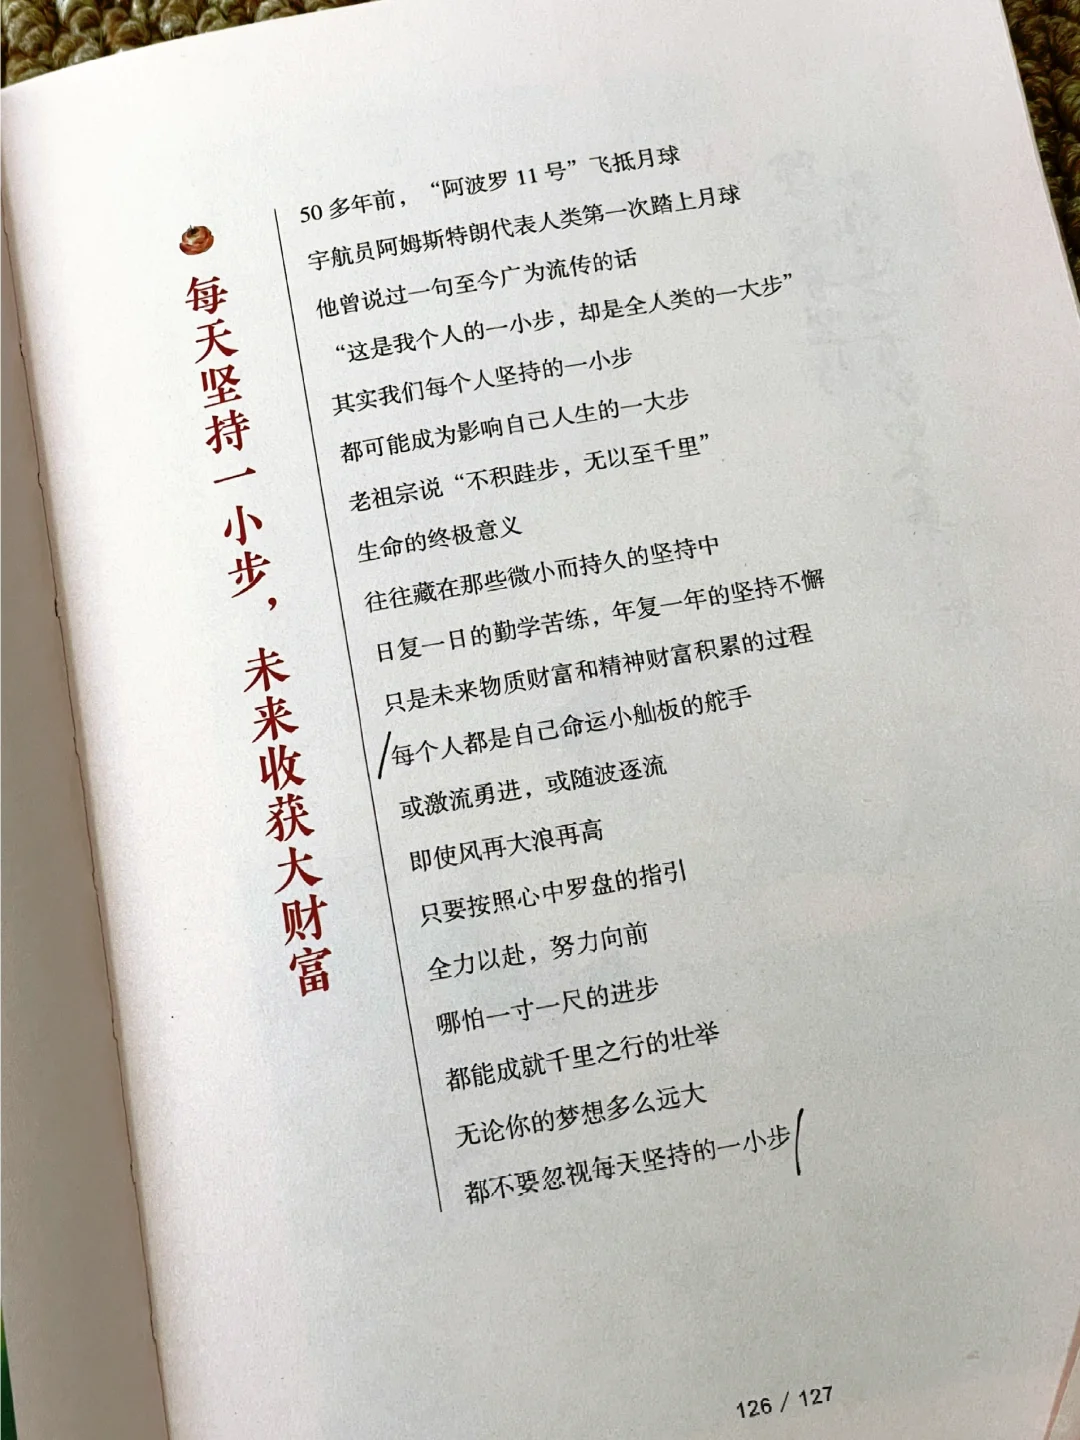 每天坚持一小步，未来收获大财富
50多年前，“阿波罗11号”飞抵月球
宇航员阿姆斯特朗代表人类第一次踏上月球
他曾说过一句至今广为流传的话
“这是我个人的一小步，却是全人类的一大步”
其实我们每个人坚持的一小步
都可能成为影响自己人生的一大步
老祖宗说“不积跬步，无以至千里”
生命的终极意义
往往藏在那些微小而持久的坚持中
日复一日的勤学苦练，年复一年的坚持不懈
只是未来物质财富和精神财富积累的过程
每个人都是自己命运小舢板的舵手
或激流勇进，或随波逐流
即使风再大浪再高
只要按照心中罗盘的指引
全力以赴，努力向前
哪怕一寸一尺的进步
都能成就千里之行的壮举
无论你的梦想多么远大
都不要忽视每天坚持的一小步
126 / 127